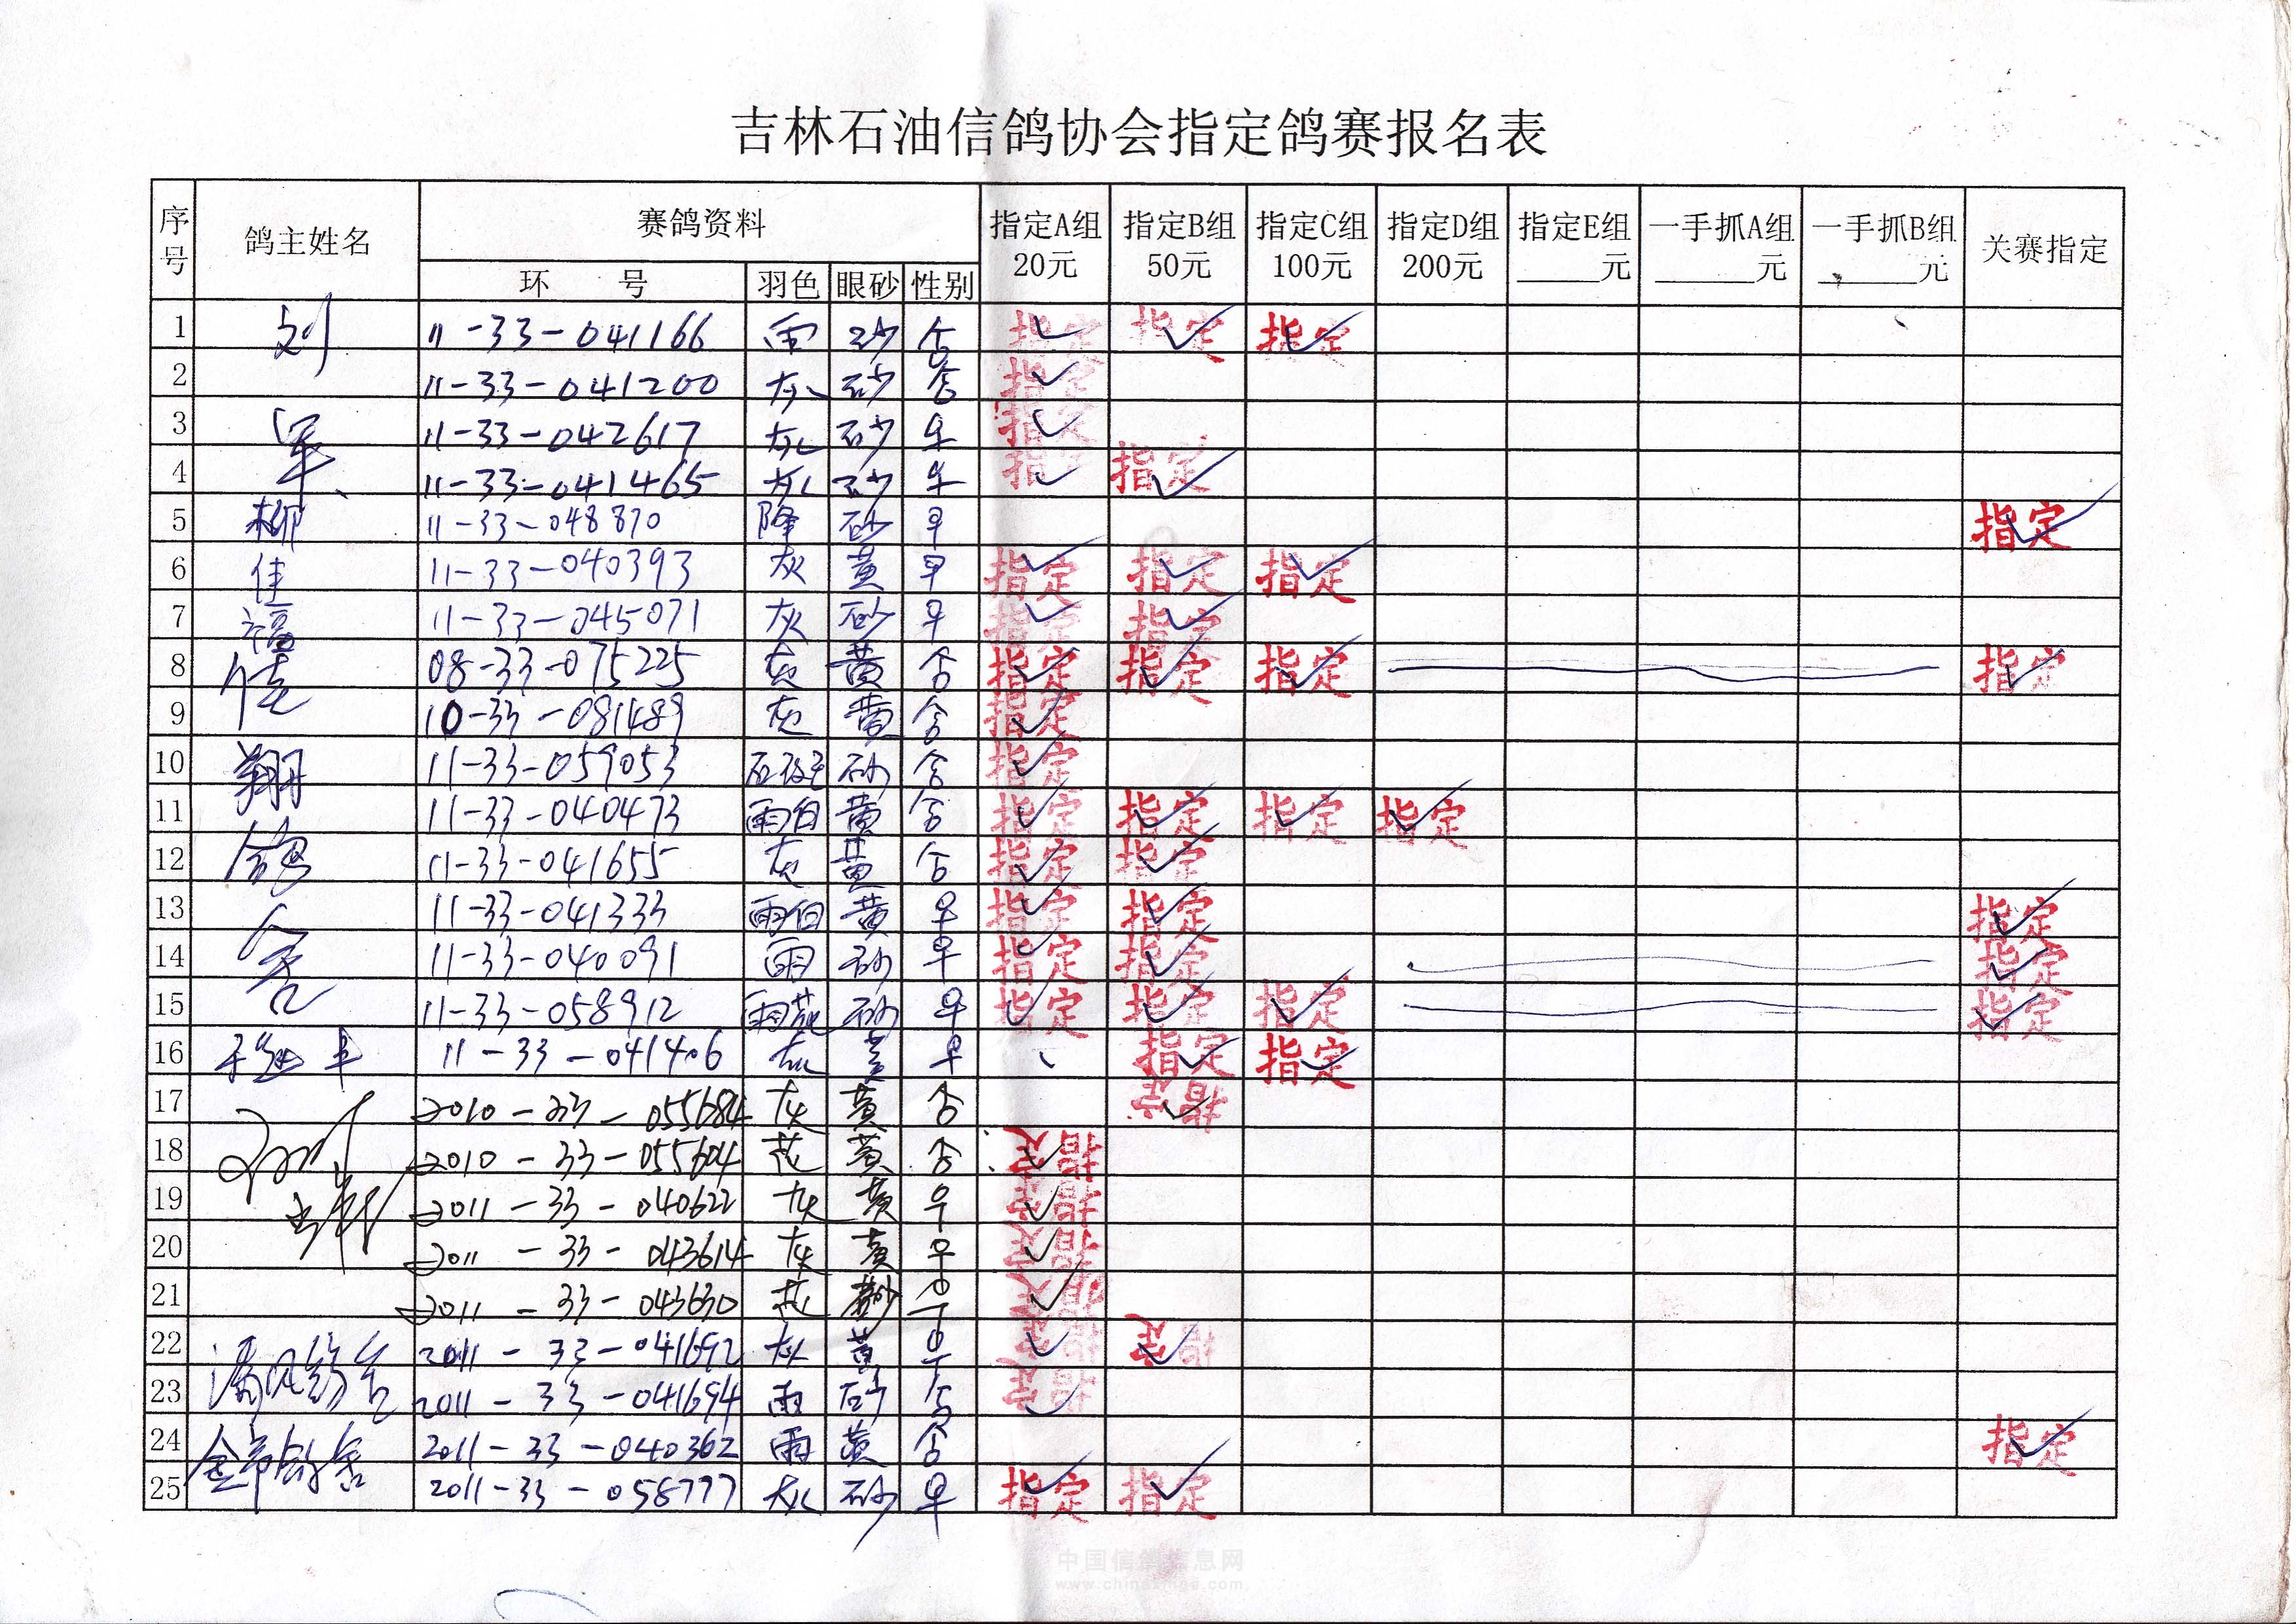 吉林石油信鸽协会指定鸽赛报名表
序号 鸽主姓名 赛鸽资料 指定A组 20元 指定B组 50元 指定C组 100元 指定D组 200元 指定E组 ____元 一手抓A组 ____元 一手抓B组 ____元 关赛指定
环 号 羽色 眼砂 性别
1 刘 11-33-041166 雨 砂 指定 指定 指定
2 11-33-041200 灰 砂 指定
3 军 11-33-042617 灰 砂 指定
4 11-33-041465 灰 砂 指定 指定
5 柳 11-33-048870 绛 砂 指定
6 佳 11-33-040393 灰 黄 指定 指定 指定
7 福 11-33-045071 灰 砂 指定 指定
8 倚 08-33-075225 灰 黄 指定 指定 指定 指定
9 10-33-081489 灰 黄 指定
10 翔 11-33-059053 砂 指定
11 11-33-040473 雨白 黄 指定 指定 指定 指定
12 鸽 11-33-041655 灰 黄 指定 指定
13 舍 11-33-041333 雨白 黄 指定 指定 指定
14 11-33-040091 雨 砂 指定 指定 指定
15 11-33-058912 雨花 砂 指定 指定 指定 指定
16 11-33-041406 灰 黄 指定 指定
17 2010-33-055684 灰 黄 指定
18 2010-33-055604 花 黄 指定
19 2011-33-040622 灰 黄 指定
20 2011-33-043614 灰 黄 指定
21 2011-33-043630 花 砂 指定
22 清风鸽舍 2011-33-041692 灰 黄 指定 指定
23 2011-33-041694 雨 砂 指定
24 金帝鸽舍 2011-33-040362 雨 黄 指定
25 2011-33-058777 灰 砂 指定 指定
中国信鸽信息网
www.chinaxinge.com